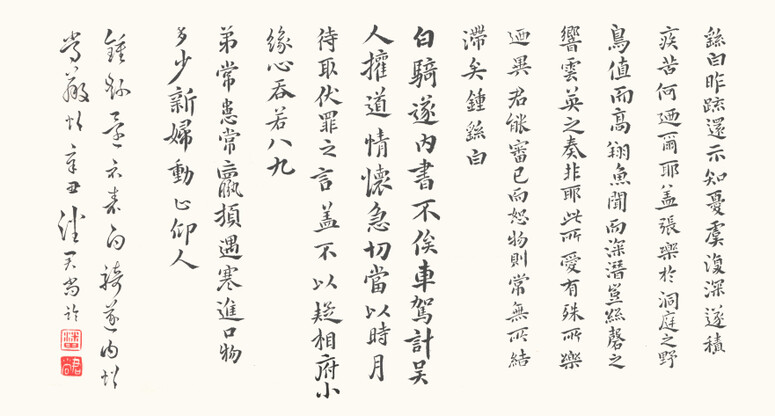 繇白昨疏還示知憂虞復深遂積
疾苦何迺爾耶蓋張樂於洞庭之野
鳥值而高翔魚聞而深潛豈絲磬之
響雲英之奏非耶此所愛有殊所樂
迺異君能審己而恕物則常無所結
滯矣鍾繇白
白騎遂內書不俟車駕計吳
人權道情懷急切當以時月
待取伏罪之言蓋不以疑相府小
緣心吞若八九
弟常患常羸頓遇寒進口物
多少新婦動止仰人
鍾繇還示表白騎遂內帖
常羸帖辛丑